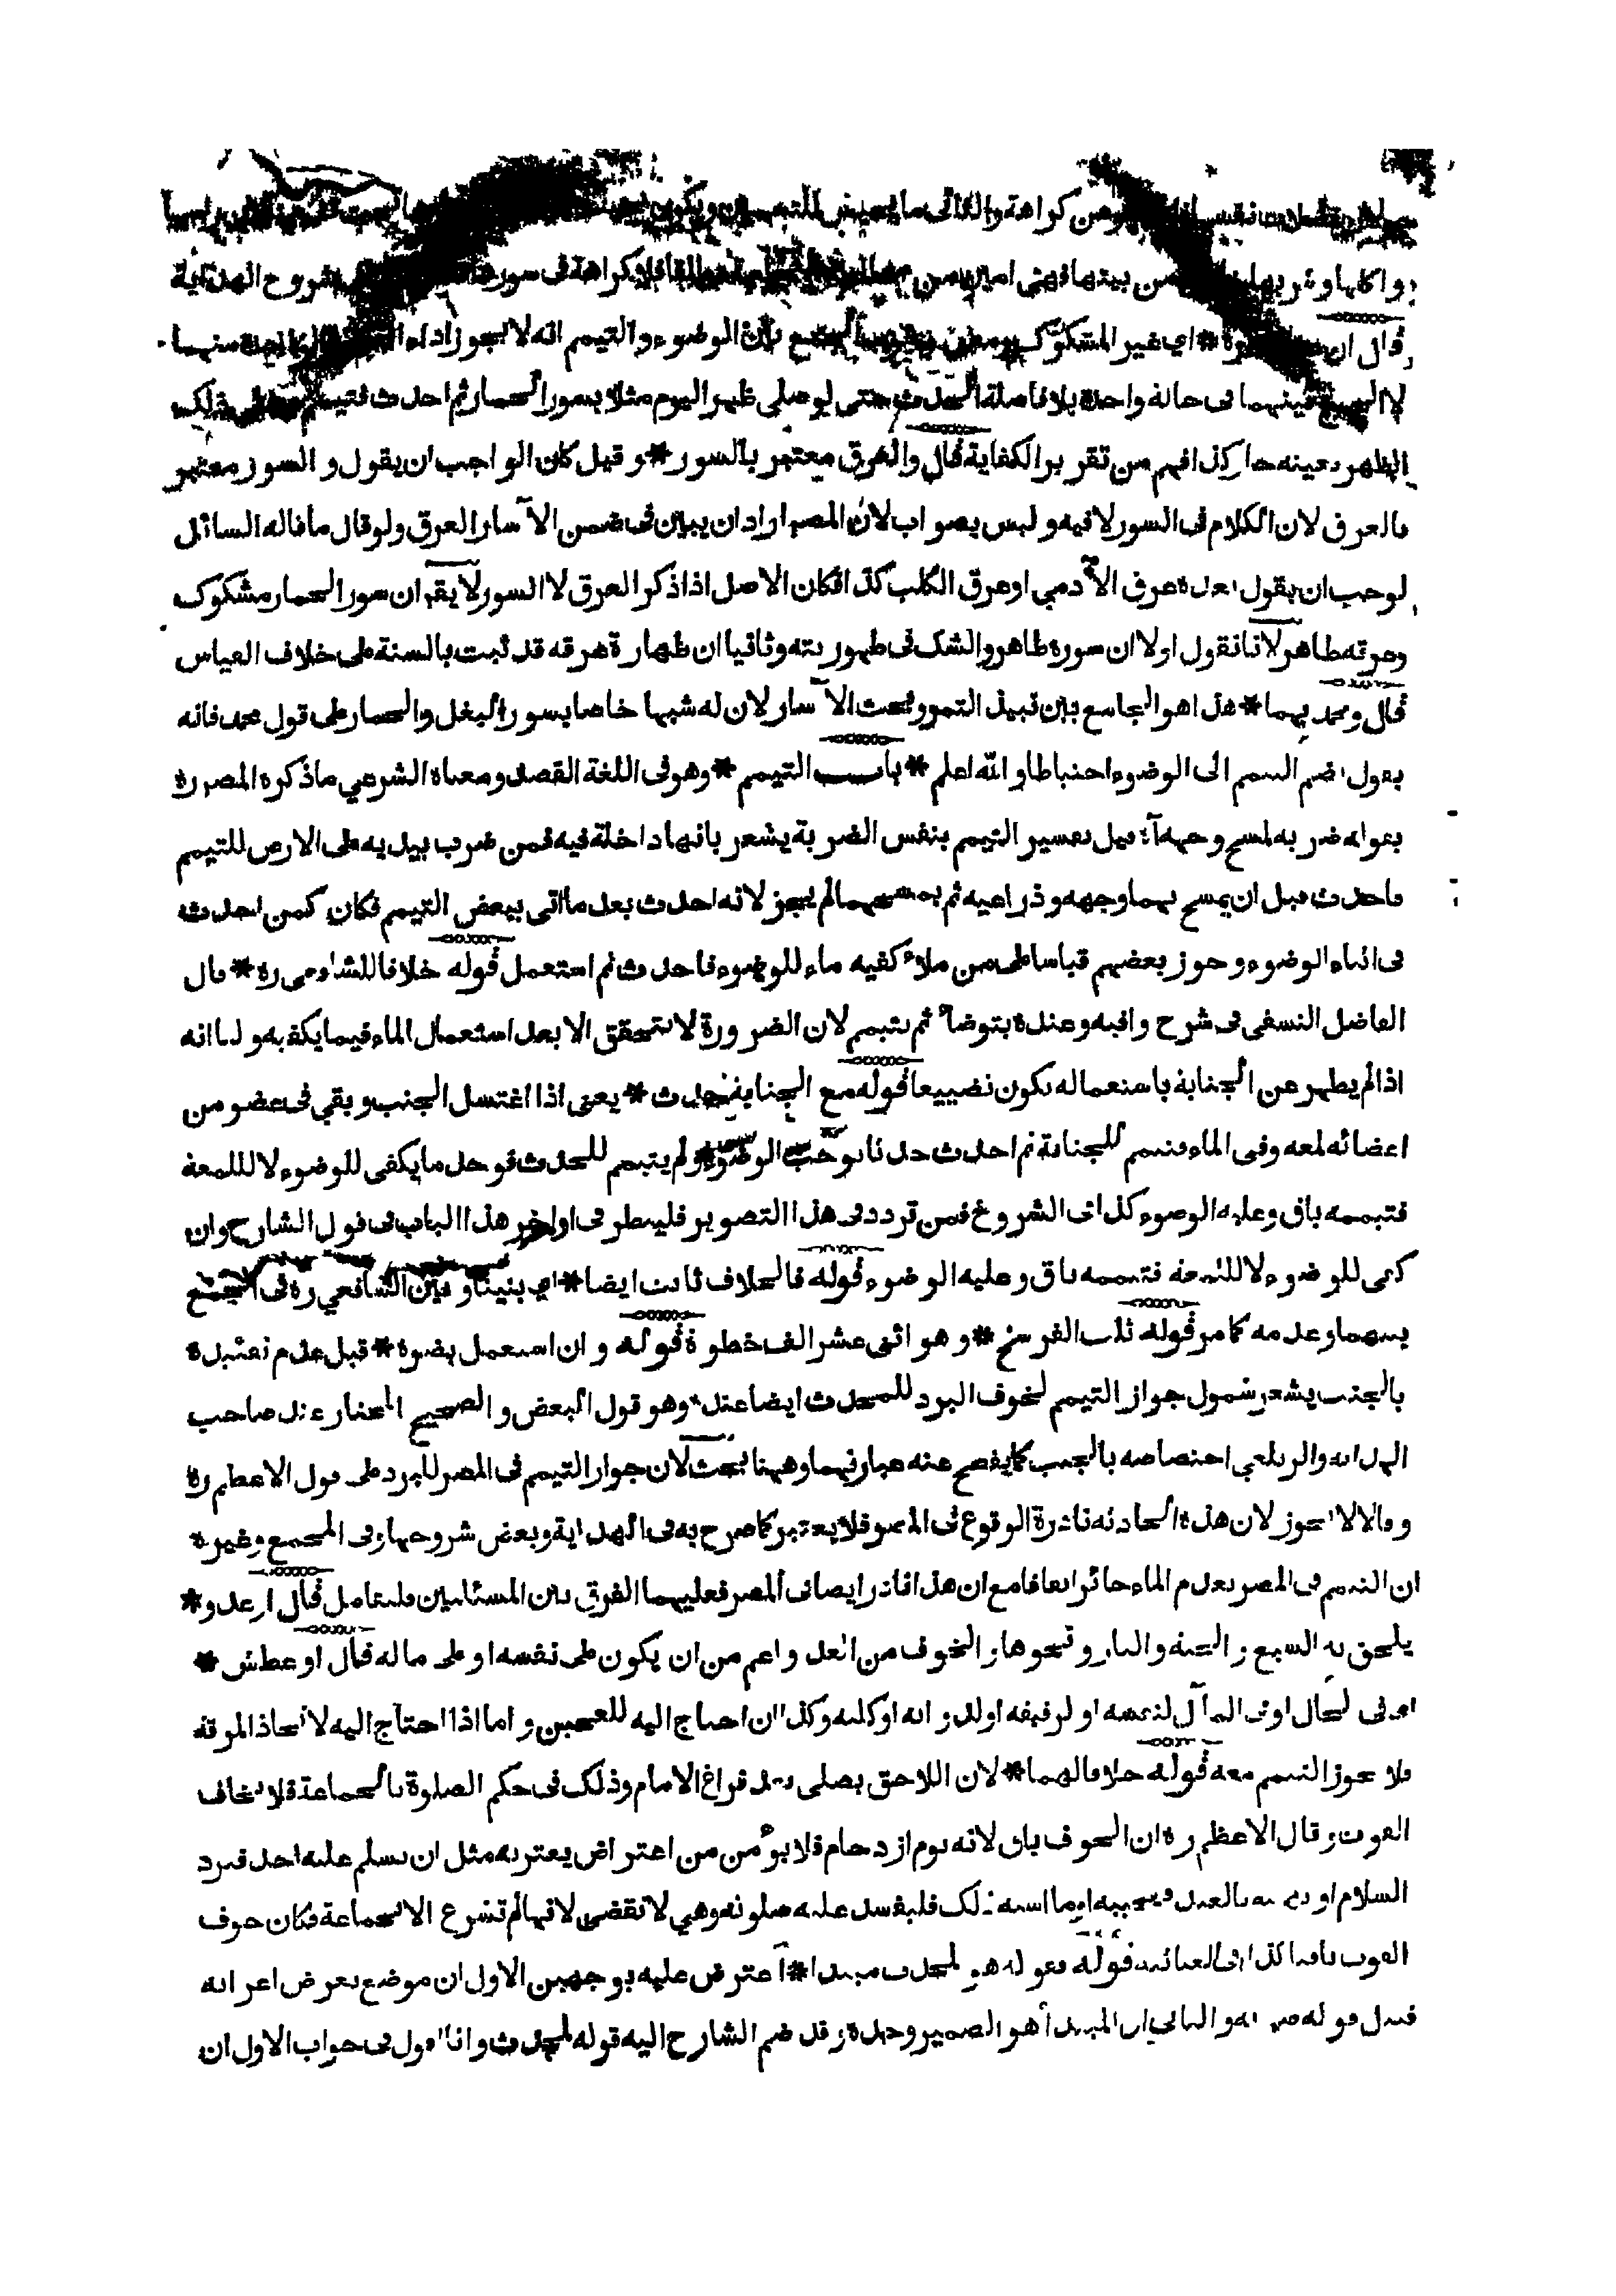 من كراهة والثاني ما
واكلها وشربها من بيتها فهي من فلا كراهة في سورها شروح الهداية
قال ان اي غير المشكوك بين الوضوء والتيمم انه لا يجوز اداء منهما
لا الجمع بينهما في حالة واحدة بلا فاصلة الحدث حتى لو صلى ظهر اليوم مثلا بسور الحمار ثم احدث فتيمم ذلك
الظهر بعينه جاز كذا فهم من تقرير الكفاية قال والعرق معتبر بالسور * وقيل كان الواجب ان يقول والسور معتبر
بالعرق لان الكلام في السور لا فيه وليس بصواب لان المصـ اراد ان يبين في ضمن الآسار العرق ولو قال ما قاله السائل
لوجب ان يقول بعده عرق الآدمي او عرق الكلب كذا فكان الاصل اذا ذكر العرق لا السور لا يقـ ان سور الحمار مشكوك
وعرقه طاهر لانا نقول اولا ان سوره طاهر والشك في طهوريته وثانيا ان طهارة عرقه قد ثبت بالسنة على خلاف القياس
قال ومحمد بهما * هذا هو الجامع بين نبيذ التمر وبحث الآسار لان له شبها خاصا بسور البغل والحمار على قول محمد فانه
يقول بضم التيمم الى الوضوء احتياطا والله اعلم * باب التيمم * وهو في اللغة القصد ومعناه الشرعي ما ذكره المصـ ره
بقوله ضربة لمسح وجهه آه قيل تفسير التيمم بنفس الضربة يشعر بانها داخلة فيه فمن ضرب بيديه على الارض للتيمم
فاحدث قبل ان يمسح بهما وجهه وذراعيه ثم يمسحهما لم يجز لانه احدث بعد ما اتى ببعض التيمم فكان كمن احدث
في اثناء الوضوء وجوز بعضهم قياسا على من ملاء كفيه ماء للوضوء فاحدث ثم استعمل قوله خلافا للشافعي ره * قال
الفاضل النسفي في شرح وافيه وعنده يتوضأ ثم يتيمم لان الضرورة لا تتحقق الا بعد استعمال الماء فيما يكفيه ولنا انه
اذا لم يطهر عن الجنابة باستعماله يكون تضييعا قوله مع الجنابة حدث * يعني اذا اغتسل الجنب وبقي في عضو من
اعضائه لمعة وفنى الماء فتيمم للجنابة ثم احدث حدثا يوجب الوضوء ولم يتيمم للحدث فوجد ما يكفي للوضوء لا للمعة
فتيممه باق وعليه الوضوء كذا في الشروح فمن تردد في هذا التصوير فلينظر في اواخر هذا الباب في قول الشارح وان
كفى للوضوء لا للمعة فتيممه باق وعليه الوضوء قوله فالخلاف ثابت ايضا * اي بيننا وبين الشافعي ره في الجمع
بينهما وعدمه كما مر قوله ثلث الفرسخ * وهو اثنى عشر الف خطوة قوله وان استعمل يضره * قيل عدم تقييده
بالجنب يشعر بشمول جواز التيمم لخوف البرد للمحدث ايضا عنده وهو قول البعض والصحيح المختار عند صاحب
الهداية والزيلعي اختصاصه بالجنب كما يفصح عنه عبارتهما وههنا بحث لان جواز التيمم في المصر للبرد على قول الاعظم ره
وقالا لا يجوز لان هذه الحادثة نادرة الوقوع في المصر فلا يعتبر كما صرح به في الهداية وبعض شروحها وفي المجمع وغيره
ان التيمم في المصر بعدم الماء جائز اتفاقا مع ان هذا نادر ايضا في المصر فعليهما الفرق بين المسئلتين فليتأمل قال او عدو *
يلحق به السبع والحية والنار ونحوها والخوف من العدو اعم من ان يكون على نفسه او على ماله قال او عطش *
اى في الحال او في المآل لنفسه او لرفيقه او لدوابه او كلبه وكذا ان احتاج اليه للعجين واما اذا احتاج اليه لاتخاذ المرقة
فلا يجوز التيمم معه قوله خلافا لهما * لان اللاحق يصلي بعد فراغ الامام وذلك في حكم الصلوة بالجماعة فلا يخاف
الفوت وقال الاعظم ره ان الخوف باق لانه يوم ازدحام فلا يؤمن من اعتراض يعتريه مثل ان يسلم عليه احد فيرد
السلام او يهنيه بالعيد ويجيبه او ما اشبه ذلك فليفسد عليه صلوته وهي لا تقضى لانها لم تشرع الا بجماعة فكان خوف
الفوت باقيا كذا في قوله فقوله هو لمحدث مبتدا * اعترض عليه بوجهين الاول ان موضع تعرض اعرابه
قوله هو الثاني ان المبتدأ هو الضمير وحده وقد ضم الشارح اليه قوله لمحدث وانا اقول في جواب الاول ان